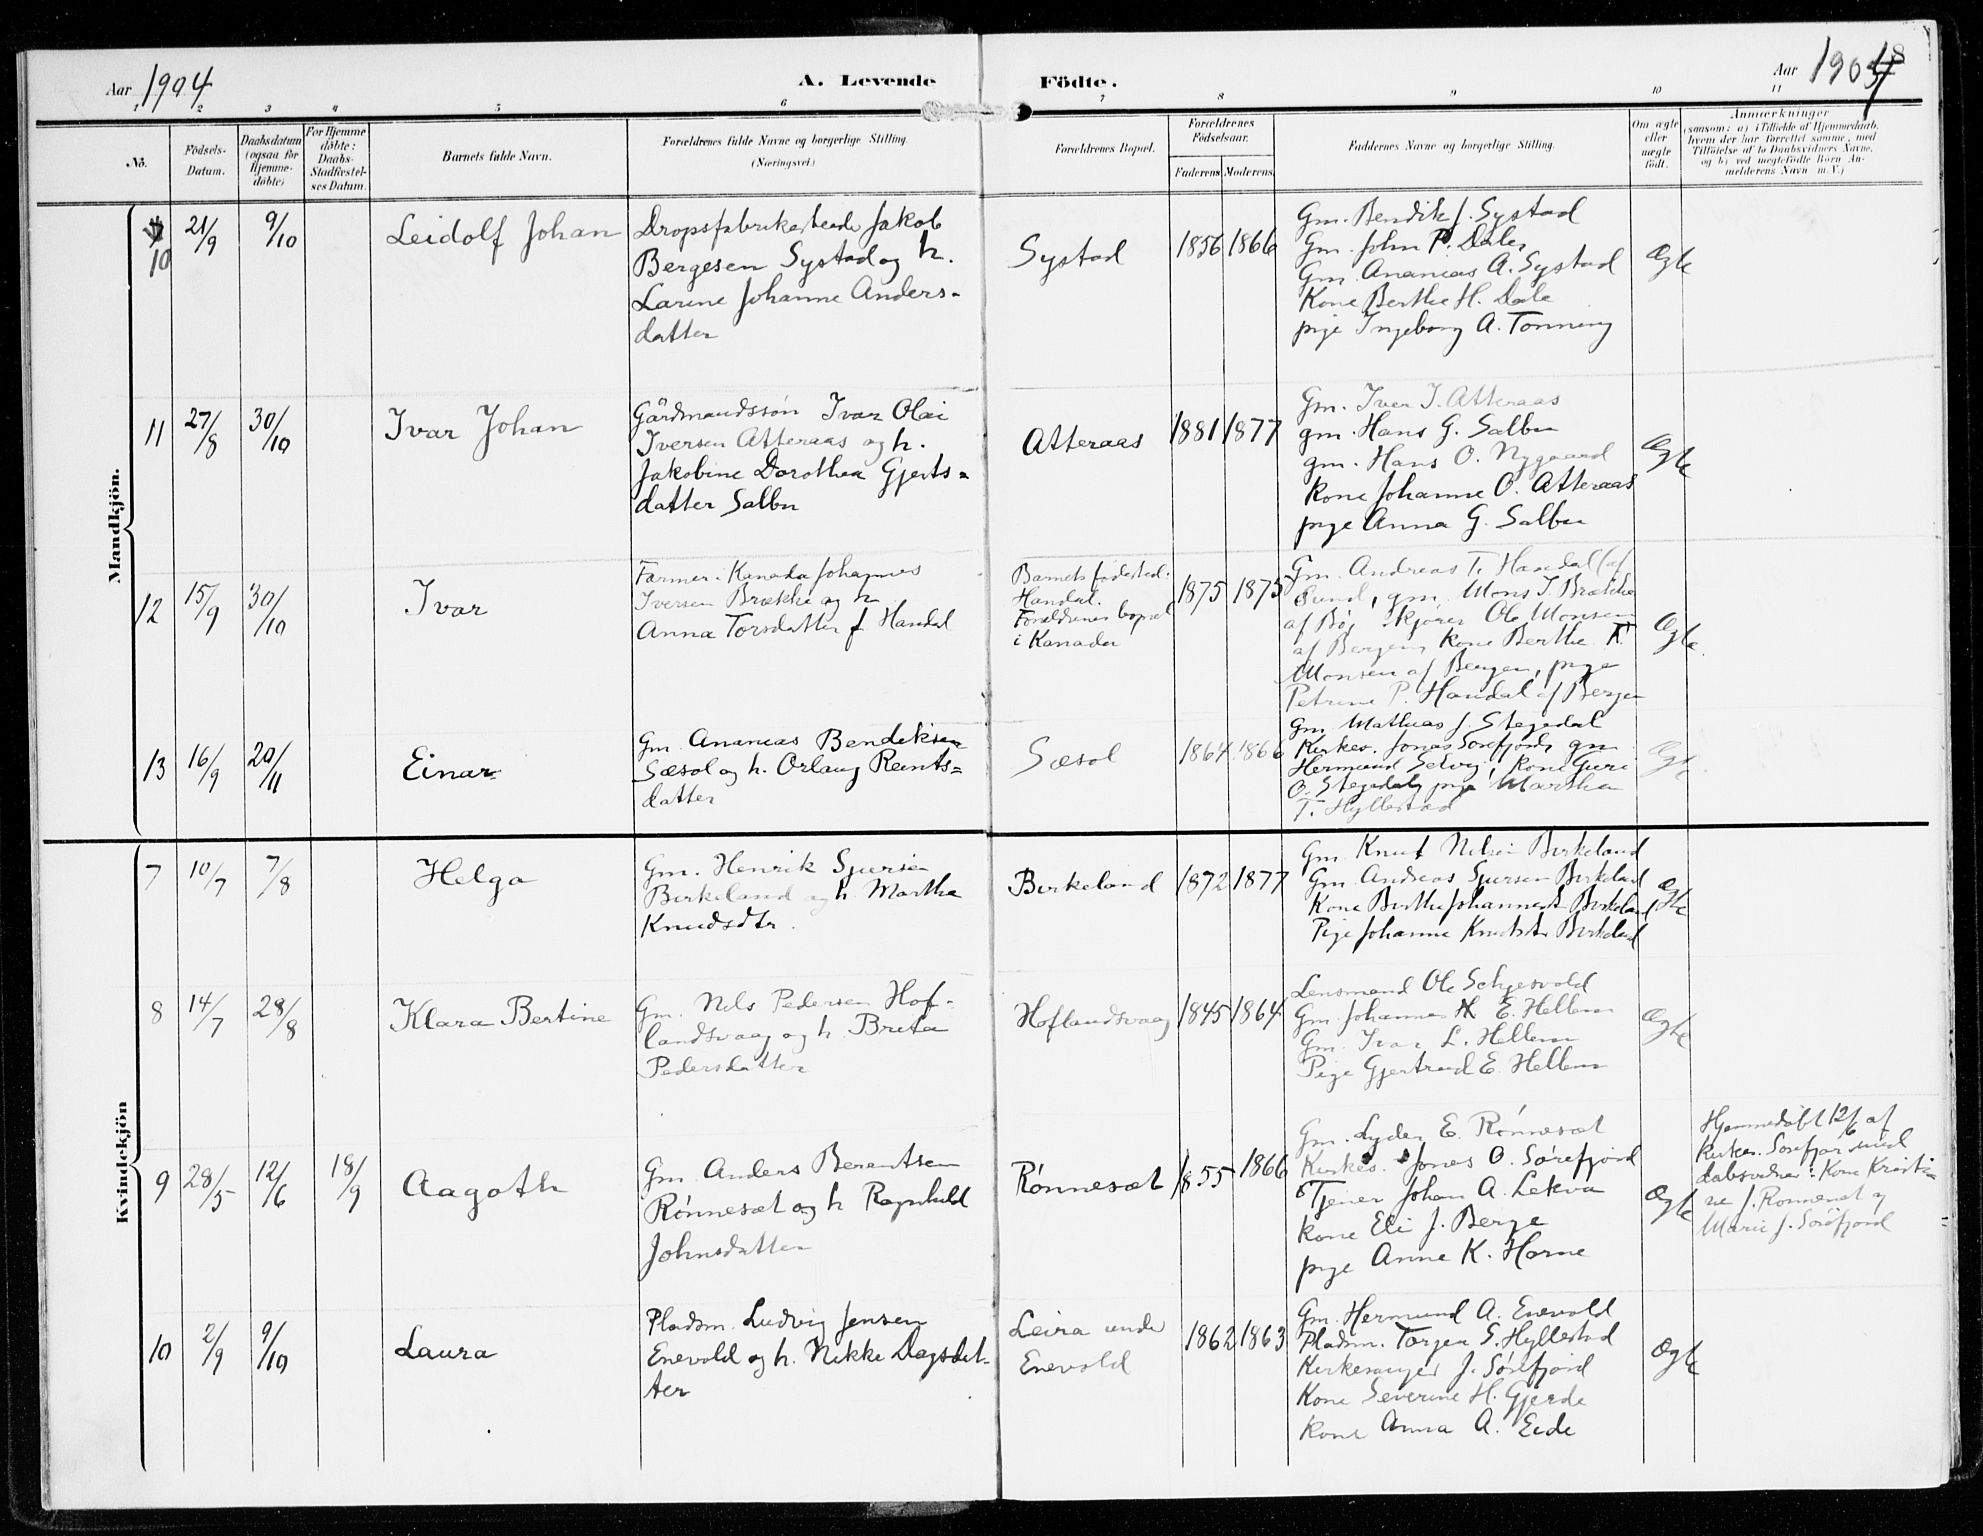 Aar 1904
A. Levende
Födte.
Aar 1904
8
1 2 3 4 5 6 7 8 9 10 11
No.
Födsels-
Datum.
Daabsdatum
(ogsaa for
Hjemme-
döbte)
For Hjemme
döbte:
Daabs-
Stadfæstel-
ses Datum.
Barnets fulde Navn.
Forældrenes fulde Navne og borgerlige Stilling.
(Næringsvei.)
Forældrenes Bopæl.
Forældrenes
Födselsaar.
Faderens Moderens
Faddernes Navne og borgerlige Stilling.
Om ægte
eller
uægte
födt.
Anmærkninger
(saasom: a) i Tilfælde af Hjemmedaab,
hvem der har forrettet samme, med
Tilföielse af to Daabsvidners Navne,
og b) ved uægtefödte Börn An-
melderens Navn m. V.)
Mandkjön.
10
21/9
9/10
Leidolf Johan
Dropsfabrikerende Jakob
Bergesen Systad og h.
Larine Johanne Anders-
datter
Systad
1856 1866
Gm. Bendik J. Systad
Gm. John P. Dale
Gm. Ananias A. Systad
Kone Berthe H. Dale
pige Ingeborg A. Tonning
Ægte
11
27/8
30/10
Ivar Johan
Gårdmandssøn Ivar Olai
Iversen Atteraas og h.
Jakobine Dorothea Gjerts=
datter Salbu
Atteraas
1881 1877
Gm. Iver I. Atteraas
gm. Hans G. Salbu
gm. Hans O. Nygaard
Kone Johanne O. Atteraas
pige Anna G. Salbu
Ægte
12
15/9
30/10
Ivar
Farmer i Kanada Johannes
Iversen Brække og h
Anna Torsdatter f. Handal
Barnets fødested:
Handal.
Forældrenes bopæl
i Kanada
1875 1875
Gm. Andreas T. Handal (af
Sund, gm. Mons I. Brække
af Bø, kjører Ole Monsen
af Bergen, Kone Berthe T.
Monsen af Bergen, pige
Petrine P. Handal af Bergen
Ægte.
13
16/9
20/11
Einar
Gm. Ananias Bendiksen
Sæsol og h. Orlaug Reints=
datter
Sæsol
1864 1866
Gm. Mathias J. Stegedal
Kirkes. Jonas Sørefjord, gm
Hermund Selvig, Kone Guri
O. Stegedal, pige Martha
T. Hyllestad
Ægte
Kvindekjön
7
10/7
7/8
Helga
Gm. Henrik Sjursen
Birkeland og h. Martha
Knudsdtr.
Birkeland
1872 1877
Gm. Knut Nilsen Birkeland
Gm. Andreas Sjursen Birkeland
Kone Berthe Johannesdt Birkeland
Pige Johanne Knutsdt Birkeland
Ægte
8
14/7
28/8
Klara Bertine
Gm. Nils Pedersen Hof-
landsvaag og h. Brita
Pedersdatter
Hoflandsvaag
1845 1864
Lensmand Ole Schjesvold
Gm. Johannes E. Hellem
Gm. Ivar L. Hellem
Pige Gjertrud E. Hellem
Ægte
9
28/5
12/6
18/9
Aagoth
Gm. Anders Berentsen
Rønneset og h Ragnhild
Johnsdatter
Rønneset
1855 1866
Gm. Lyder E. Rønneset
Kirkes. Jonas O. Sørefjord
Tjener Johan A. Lekva
Kone Eli J. Berge
pige Anne K. Horne
Ægte
Hjemmedøbt 12/6 af
kirkes. Sørefjord med
dabsvidner: Kone Kristi-
ne J. Rønneset og
Marie J. Sørefjord
10
2/9
9/10
Laura
Pladsm. Ludvig Jensen
Enevold og h. Nikke Dagsdat-
ter
Leira under
Enevold
1862 1863
Gm. Hermund A. Enevold
Pladsm. Torger S. Hyllestad
Kirkesanger J. Sørefjord
Kone Severine H. Gjerde
Kone Anna A. Eide
Ægte